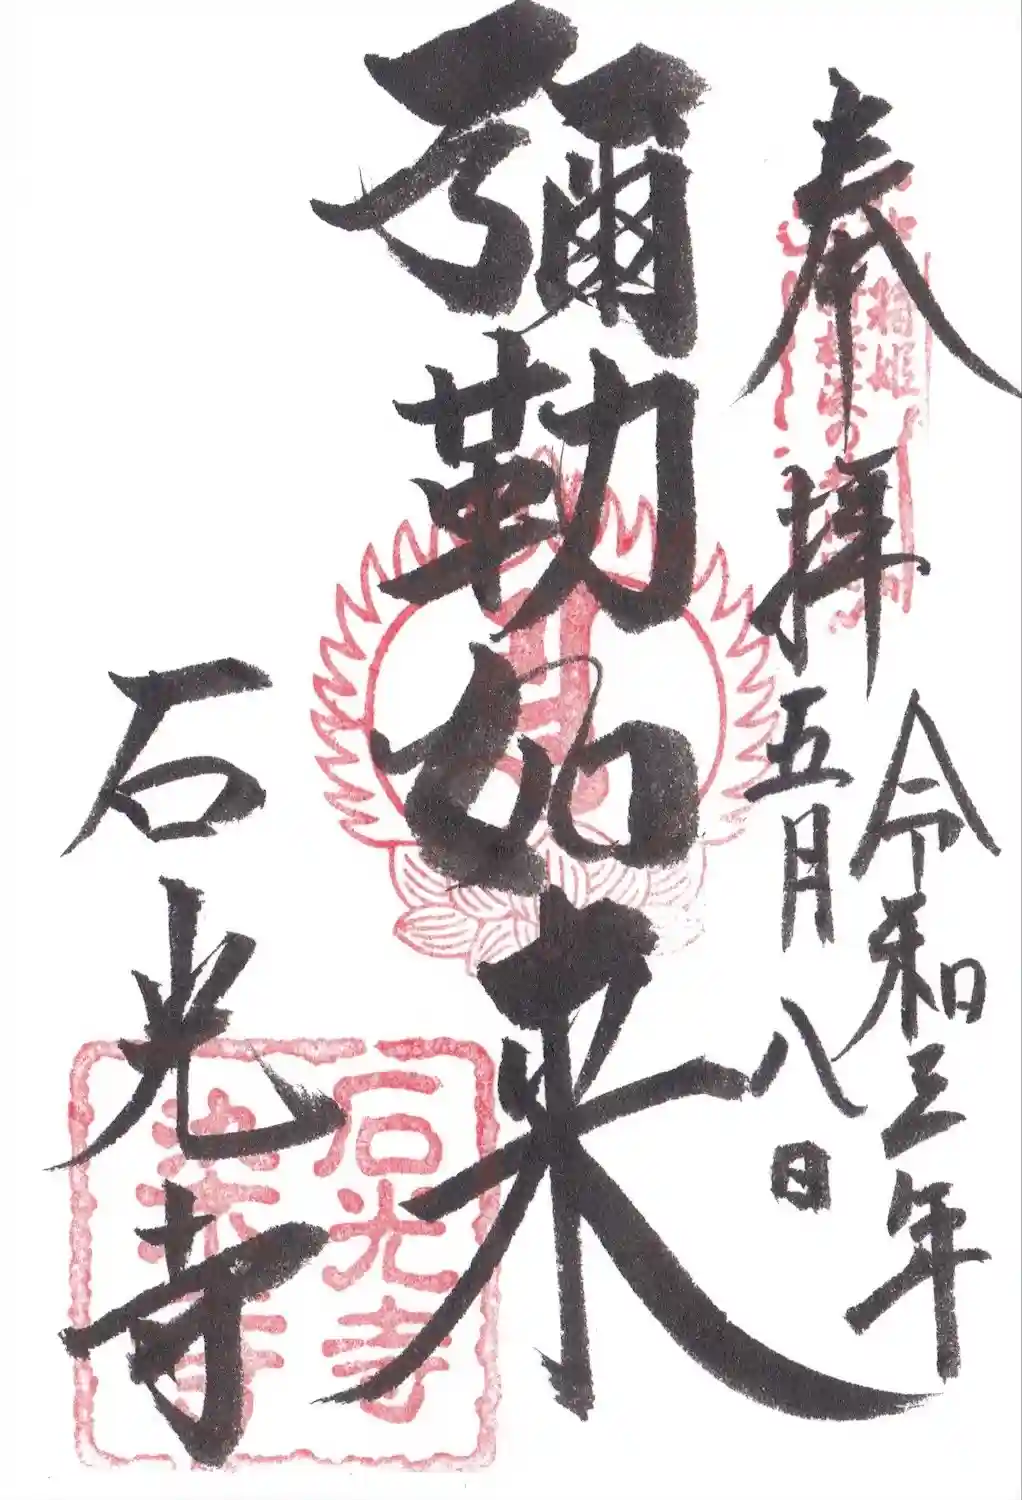 奉拝
令和三年
五月八日
彌勒如来
石光寺
石光寺
染寺